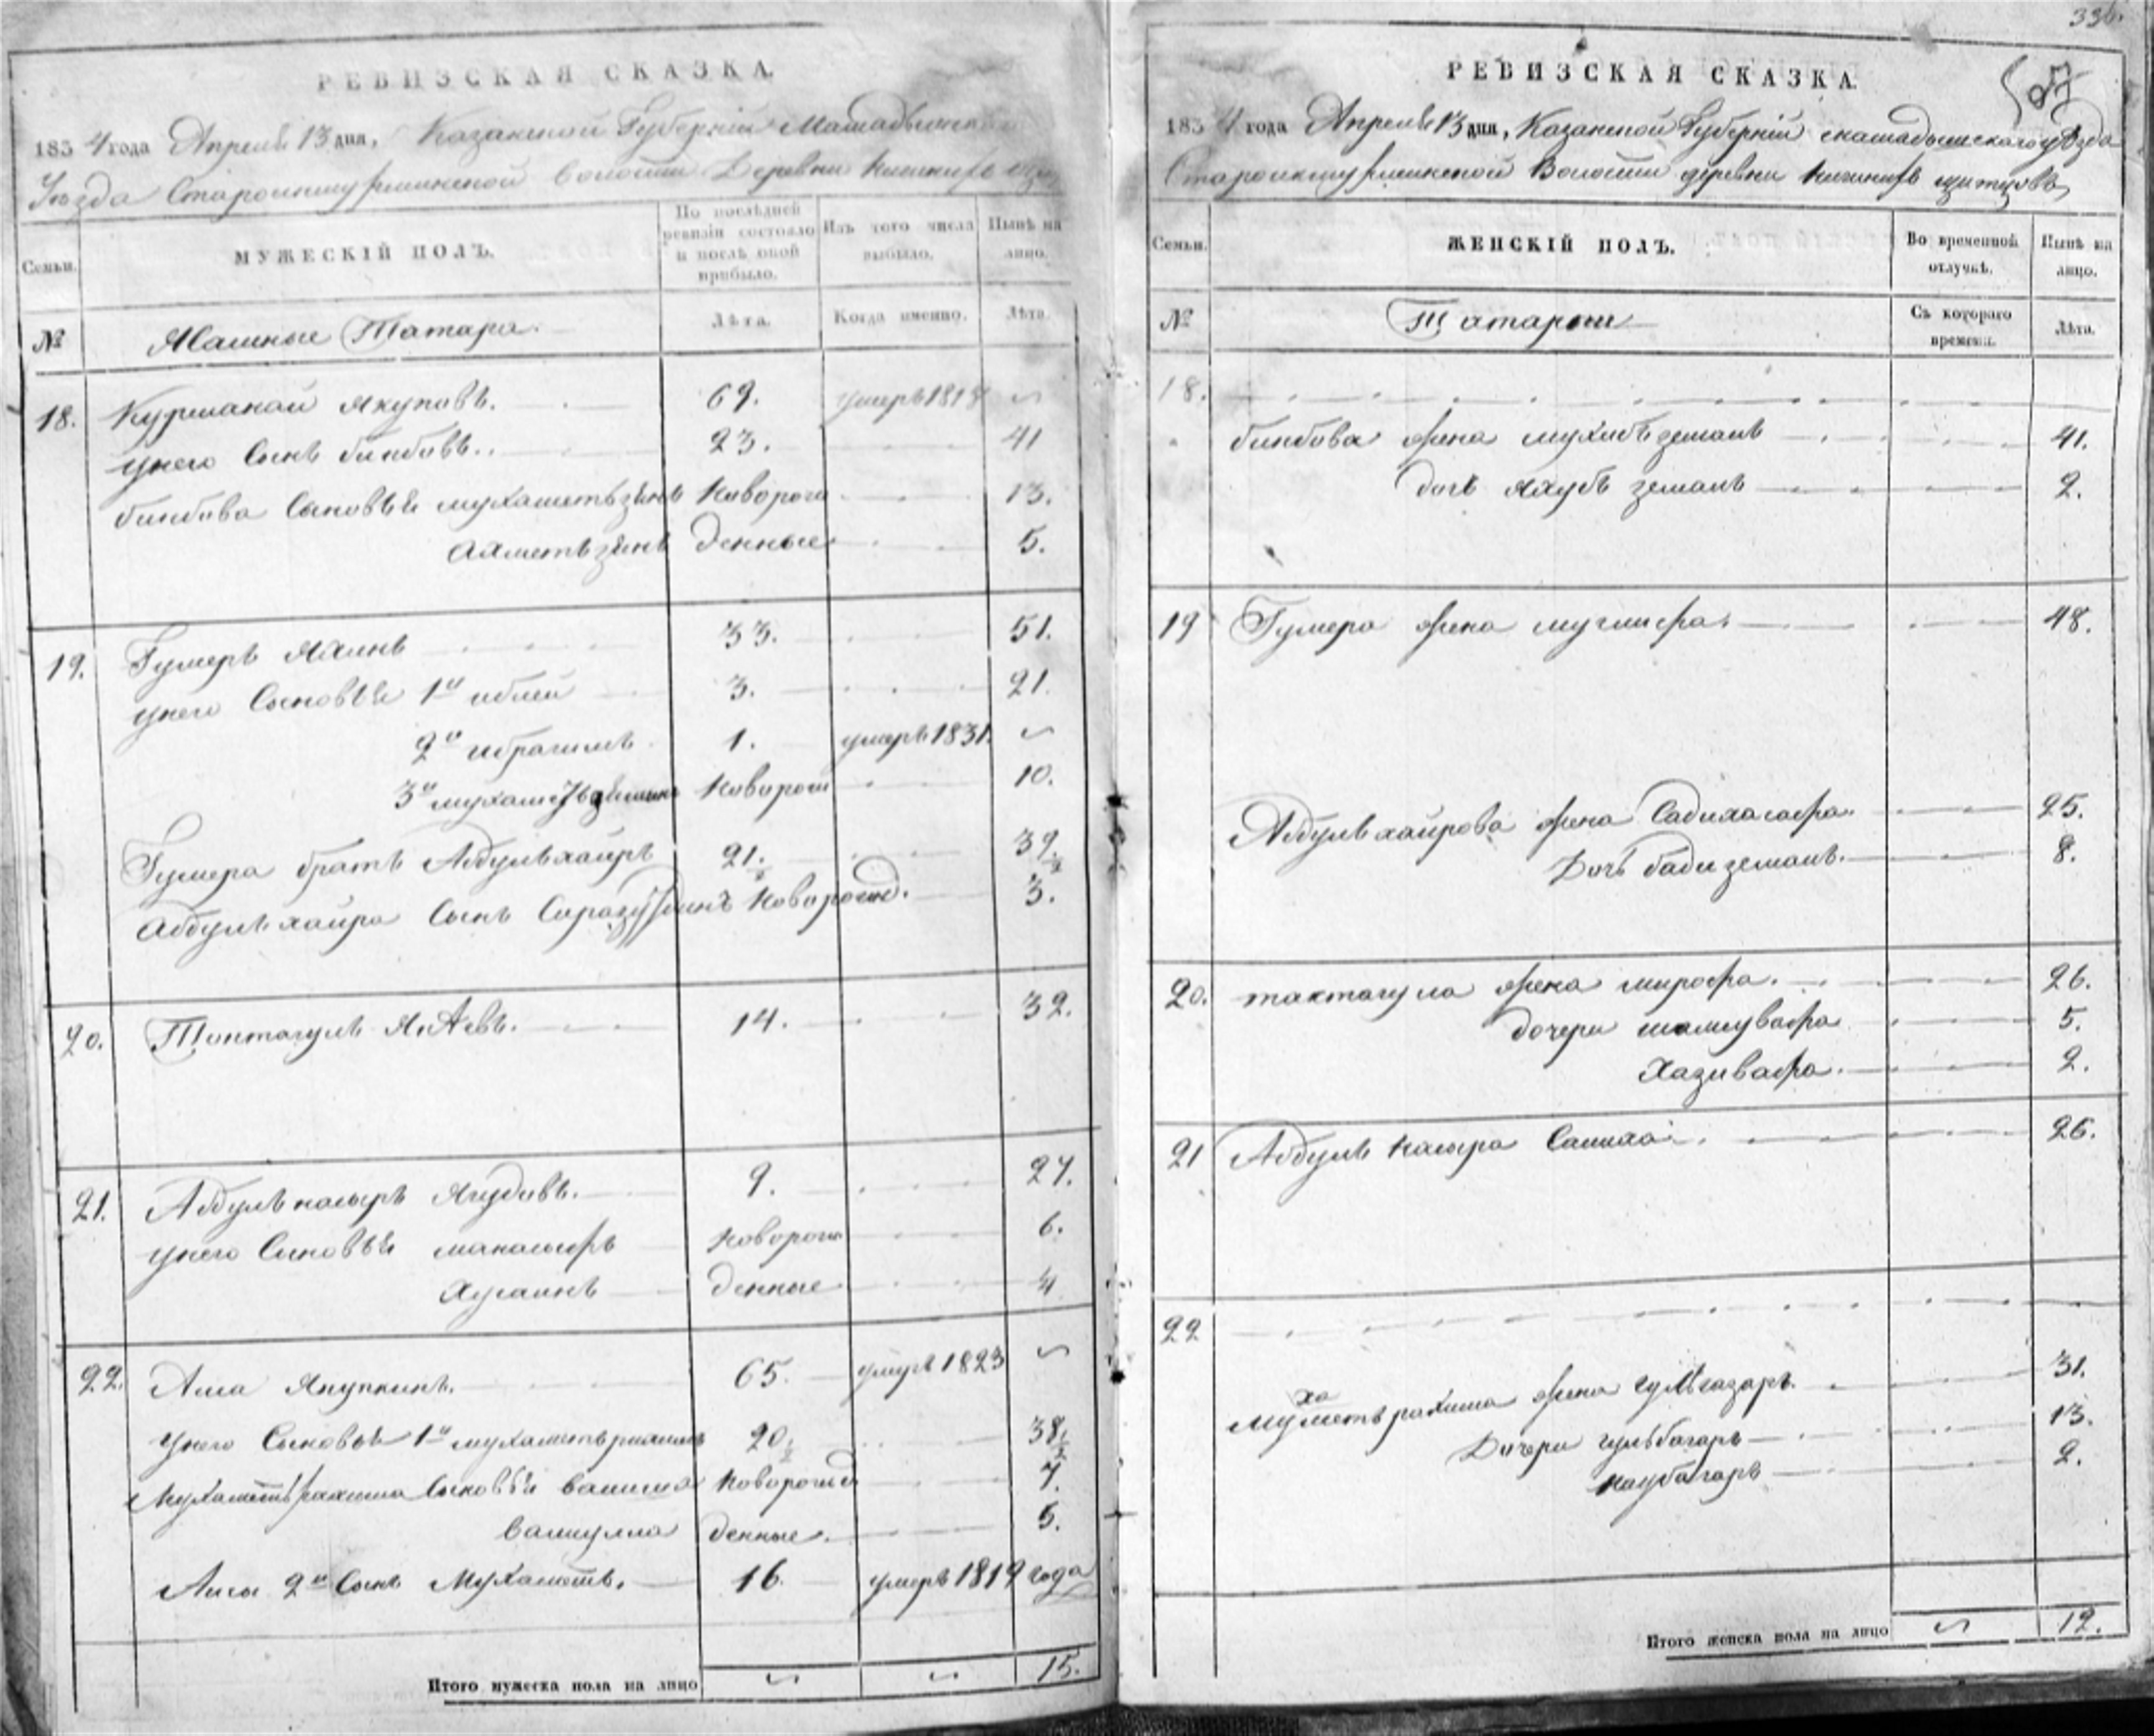 РЕВИЗСКАЯ СКАЗКА
1834 года Апреля 13 дня, Казанской Губернии Мамадышскаго
Уезда Староикшурминской волости Деревни
Семьи.
МУЖЕСКІЙ ПОЛЪ.
По послѣдней ревизіи состояло и послѣ оной прибыло.
Изъ того числа выбыло.
Нынѣ на лицо.
№
Ясашные Татара.
Лѣта.
Когда именно.
Лѣта.
18. Курманай Якуповъ. 69. умеръ 1818
унего Сынъ бикбовъ. 23. 41
бикбова Сыновья мухаметьзянъ Новорож 13.
Ахметьзянъ денные 5.
19. Гумеръ Яхинъ 33. 51.
унего Сыновья 1й иблей 3. 21.
2й ибрагимъ 1. умеръ 1831.
3й Новорож 10.
Гумера братъ Абдулъхаиръ 21.½ 39.½
Абдулъхаира Сынъ Новорожд. 3.
20. Токтагулъ 14. 32.
21. Абдулънасыръ Ягудивъ. 9. 27.
унего Сыновья Новорож 6.
Хусаинъ денные 4
22. Апса Якупкинъ. 65. умеръ 1823
унего Сыновья 1й мухаметьрахимъ 20½ 38½
Мухаметьрахима Сыновья Новорожд 7.
валиулла денные. 5.
2й Сынъ Мухаметь. 16. умеръ 1819 года
Итого мужеска пола на лицо 15.
336.
РЕВИЗСКАЯ СКАЗКА.
1834 года Апреля 13 дня, Казанской Губерніи мамадышскаго уѣзда
Староикшурминской Волости деревни
Семьи.
ЖЕНСКІЙ ПОЛЪ.
Во временной отлучкѣ.
Нынѣ на лицо.
№
Татарки
Съ котораго времени.
Лѣта.
18.
бикбова жена мухибъземалъ 41.
дочь Яхубъ земалъ 2.
19 Гумера жена 48.
Абдулъхаирова жена Садихасафа 25.
Дочь бадиземалъ. 8.
20. тактагула жена 26.
дочери 5.
2.
21 Абдулъ насыра Салиха 26.
22
Мухаметьрахима жена гульгазаръ. 31.
Дочери гульбагаръ 13.
наубагаръ 2.
Итого женска пола на лицо 12.